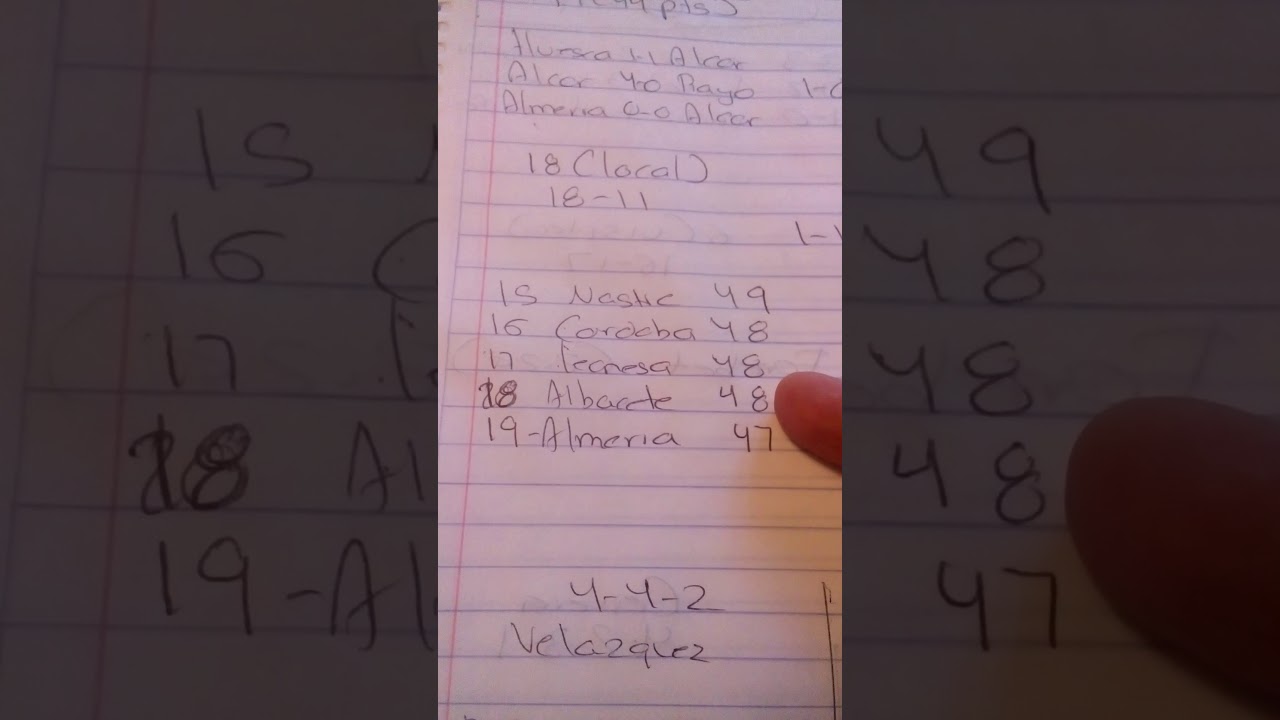 44 pts)
Huesca 1-1 Alcor
Alcor 4-0 Rayo 1-0
Almeria 0-0 Alcor
18 (local)
18-11
1-1
15 Nastic 49
16 Cordoba 48
17 48
18 Albacete 48
19-Almeria 47
4-4-2
Velazquez